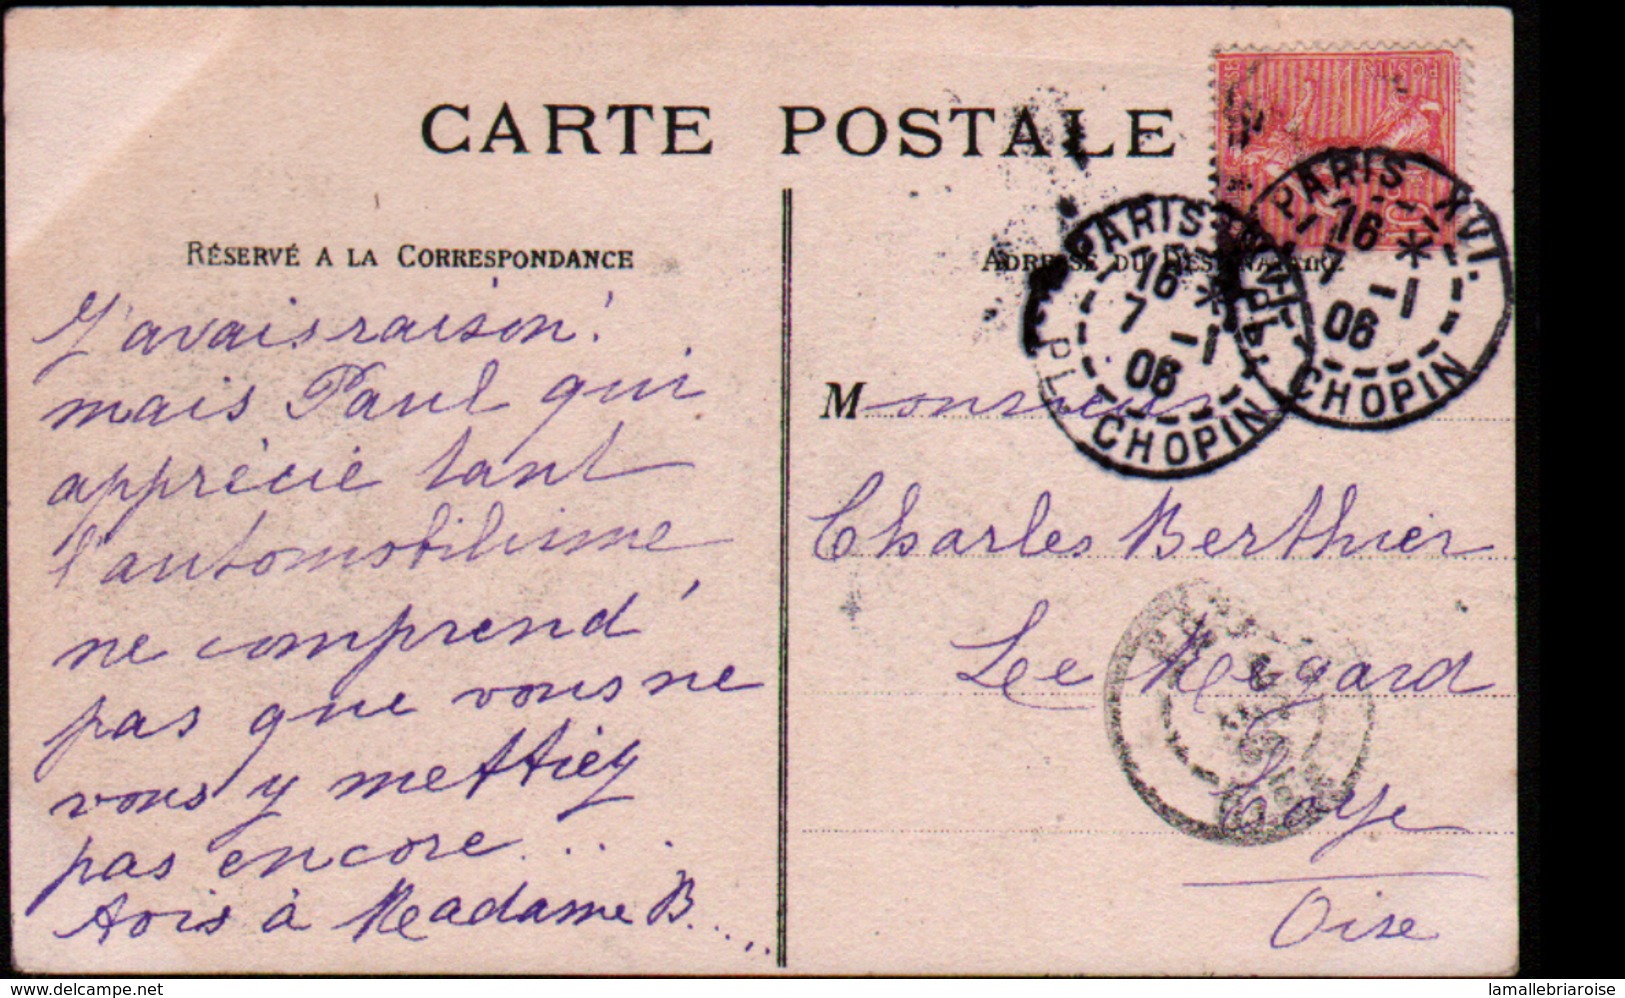 CARTE POSTALE
RÉSERVÉ A LA CORRESPONDANCE
J'avais raison!
mais Paul qui
apprécie tant
l'automobilisme
ne comprend
pas que vous ne
vous y mettiez
pas encore....
Avis à Madame B.....
ADRESSE DU DESTINATAIRE
Monsieur
Charles Berthier
Le Mégard
Laye
Oise
POSTES
PARIS XVI.
16 *
7 -1
06
PL. CHOPIN
PARIS XVI.
16 *
7 -1
06
PL. CHOPIN
www.delcampe.net
lamallebriaroise